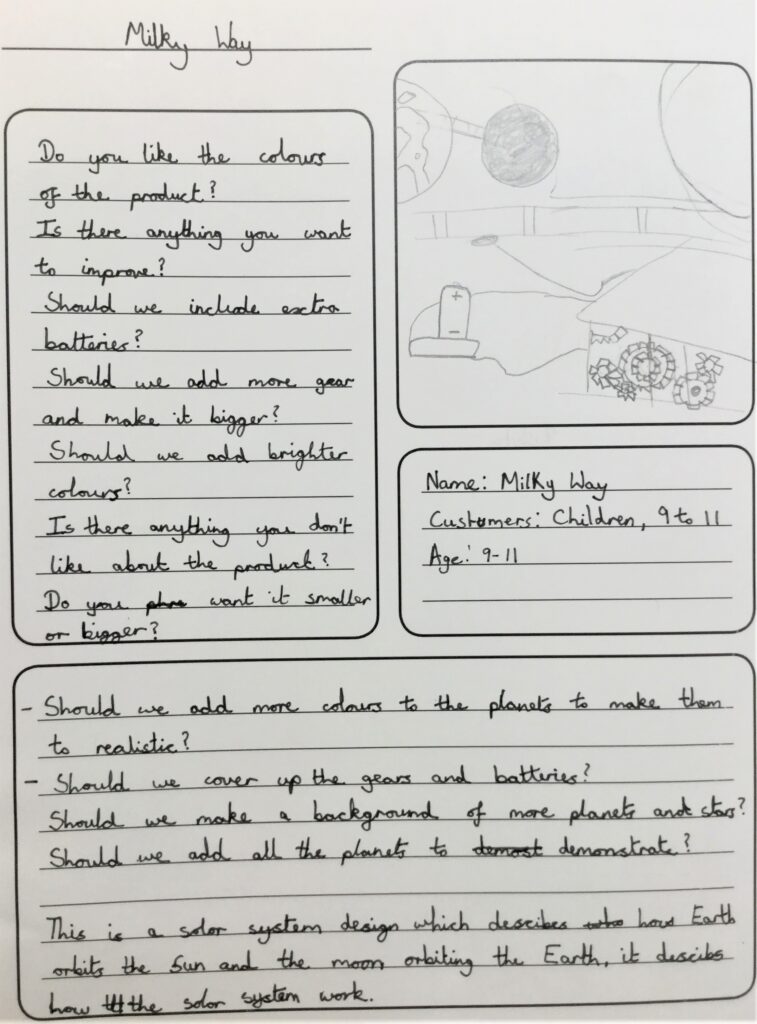 Milky Way
Do you like the colours
of the product?
Is there anything you want
to improve?
Should we include exctra
batteries?
Should we add more gear
and make it bigger?
Should we add brighter
colours?
Is there anything you don't
like about the product?
Do you want it smaller
or bigger?
+
-
Name: Milky Way
Customers: Children, 9 to 11
Age: 9-11
- Should we add more colours to the planets to make them
to realistic?
- Should we cover up the gears and batteries?
Should we make a background of more planets and stars?
Should we add all the planets to demost demonstrate?
This is a solor system design which descibes who how Earth
orbits the Sun and the moon orbiting the Earth, it descibs
how the solor system work.